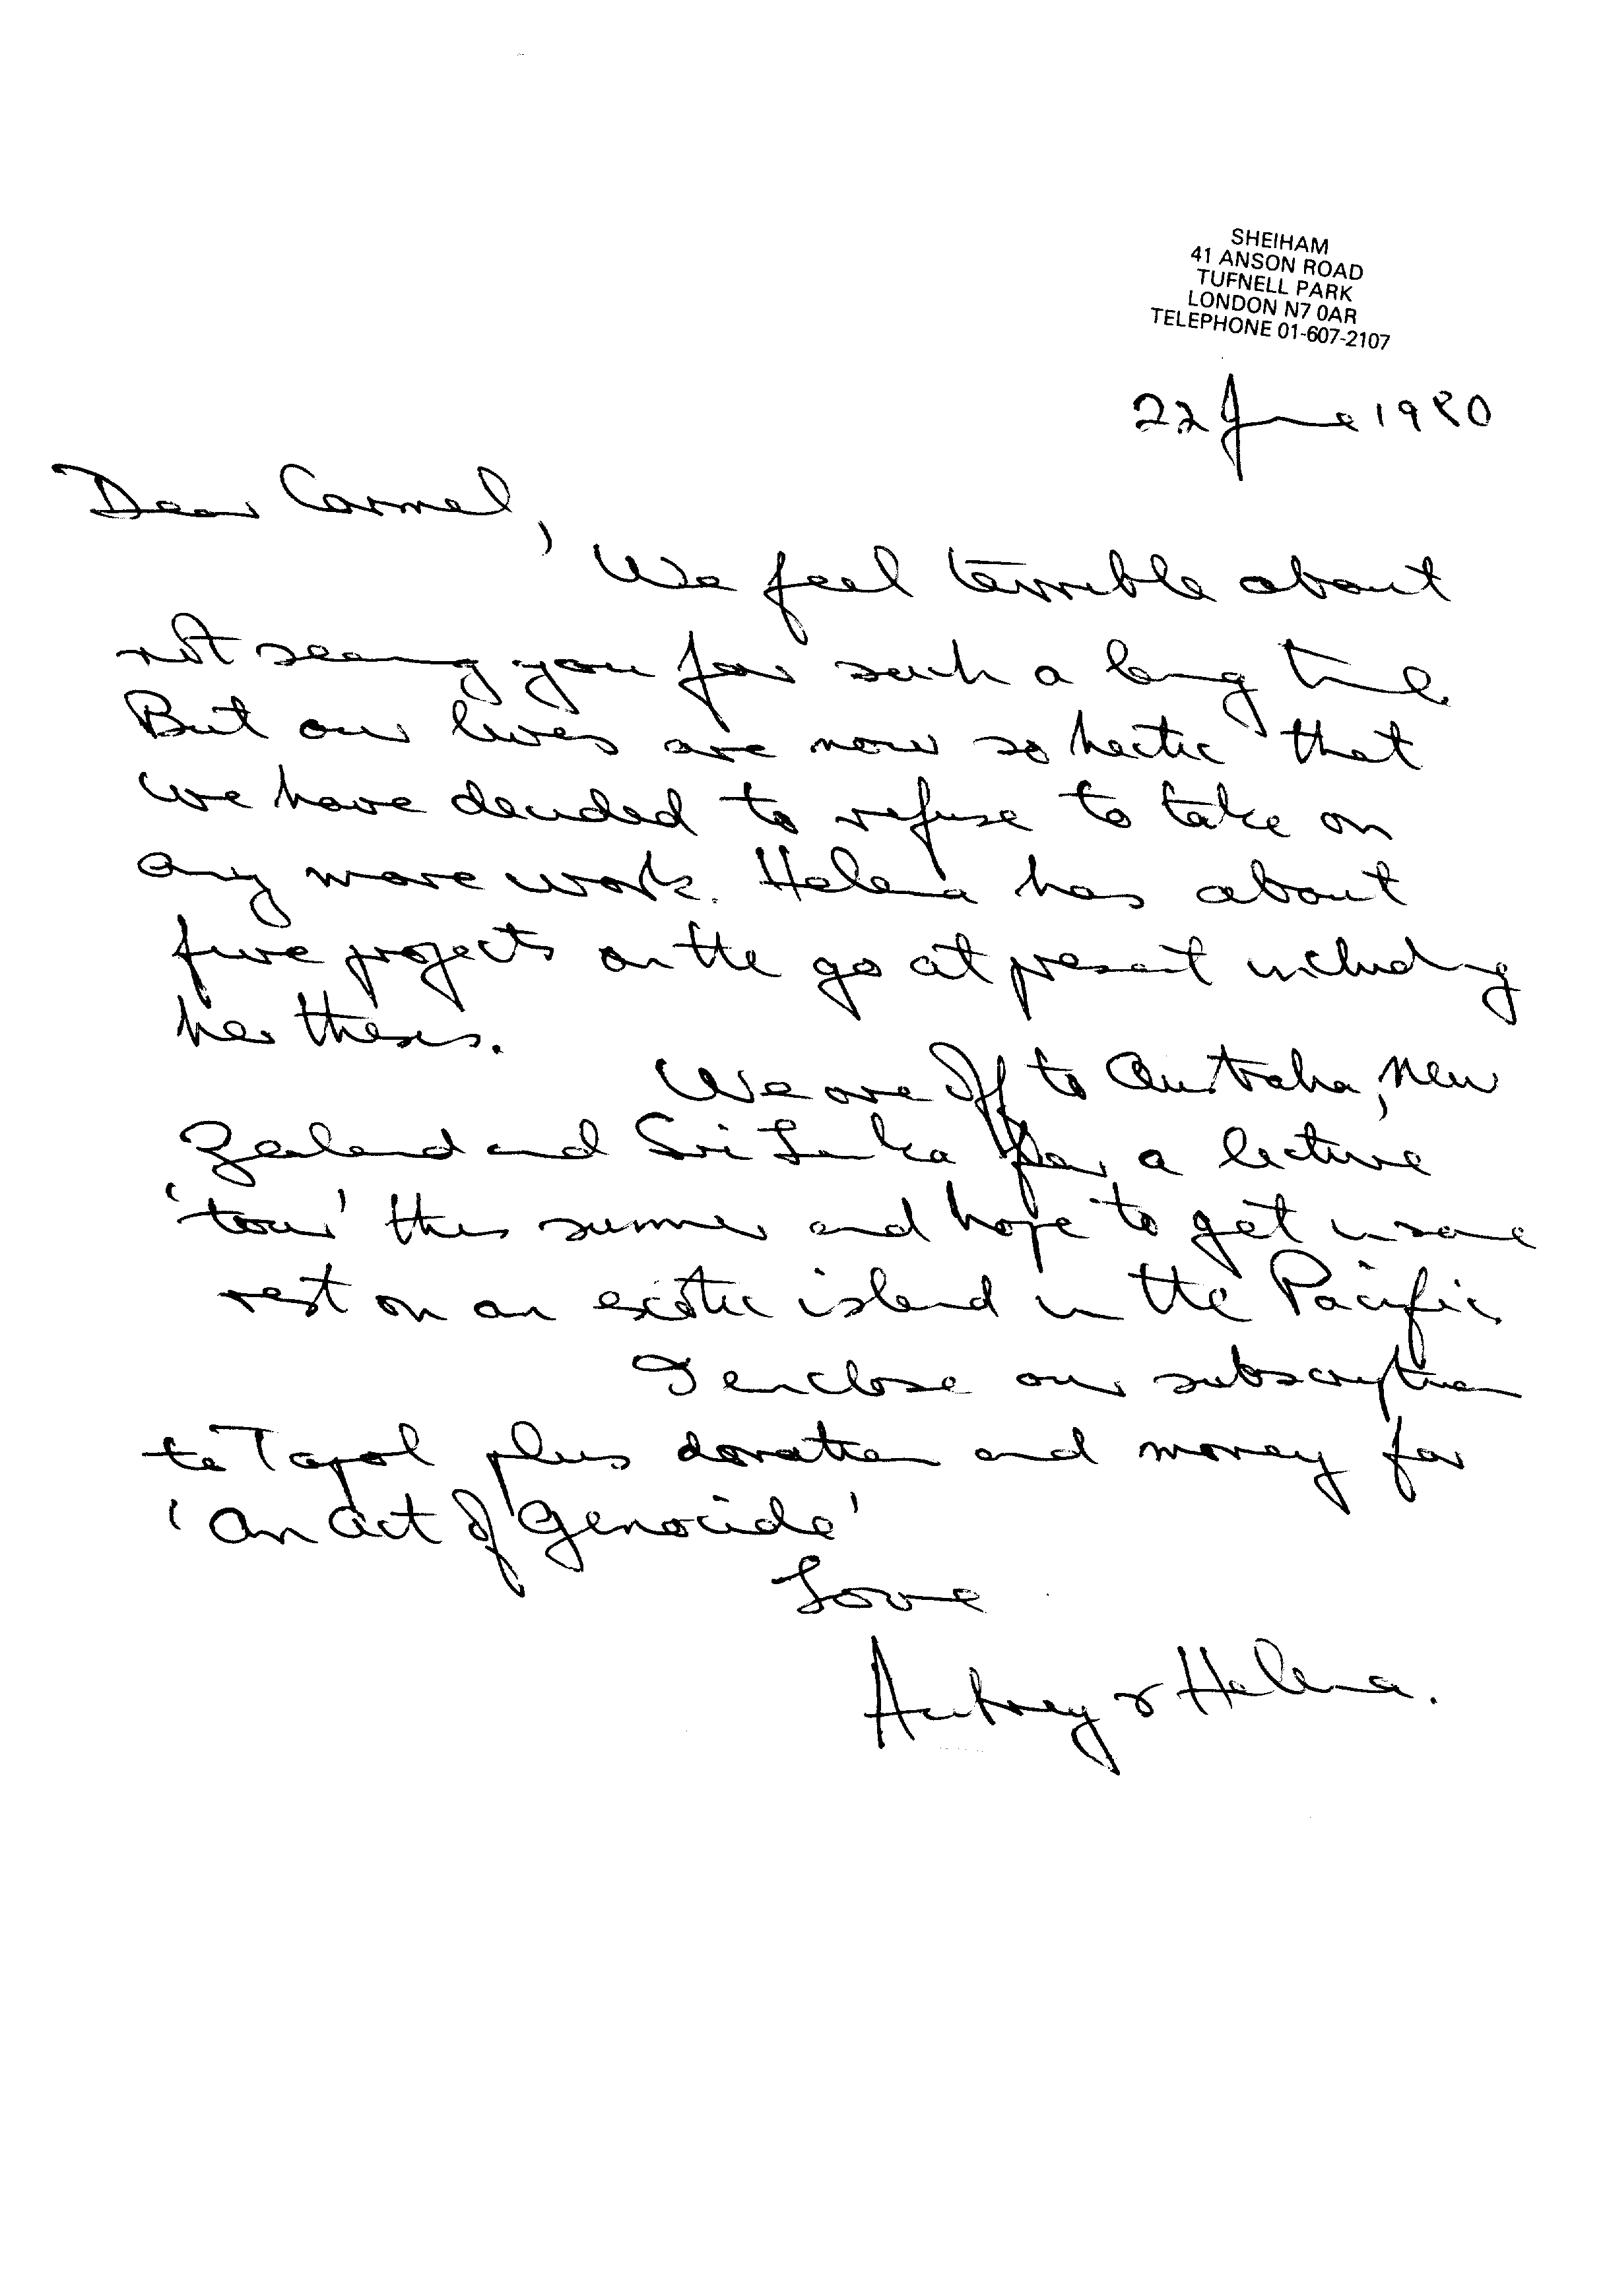 SHEIHAM
41 ANSON ROAD
TUFNELL PARK
LONDON N7 0AR
TELEPHONE 01-607-2107
22 June 1980
Dear Carmel,
We feel terrible about
not seeing you for such a long time.
But our lives are now so hectic that
we have decided to refuse to take on
any more work. Helena has about
five projects on the go at present including
her thesis.
We are off to Australia, New
Zealand and Sri Lanka for a lecture
'tour' this summer and hope to get in some
rest on an exotic island in the Pacific.
I enclose our subscription
to Tapol plus donation and money for
'An Act of Genocide'
Love
Aubrey & Helena.